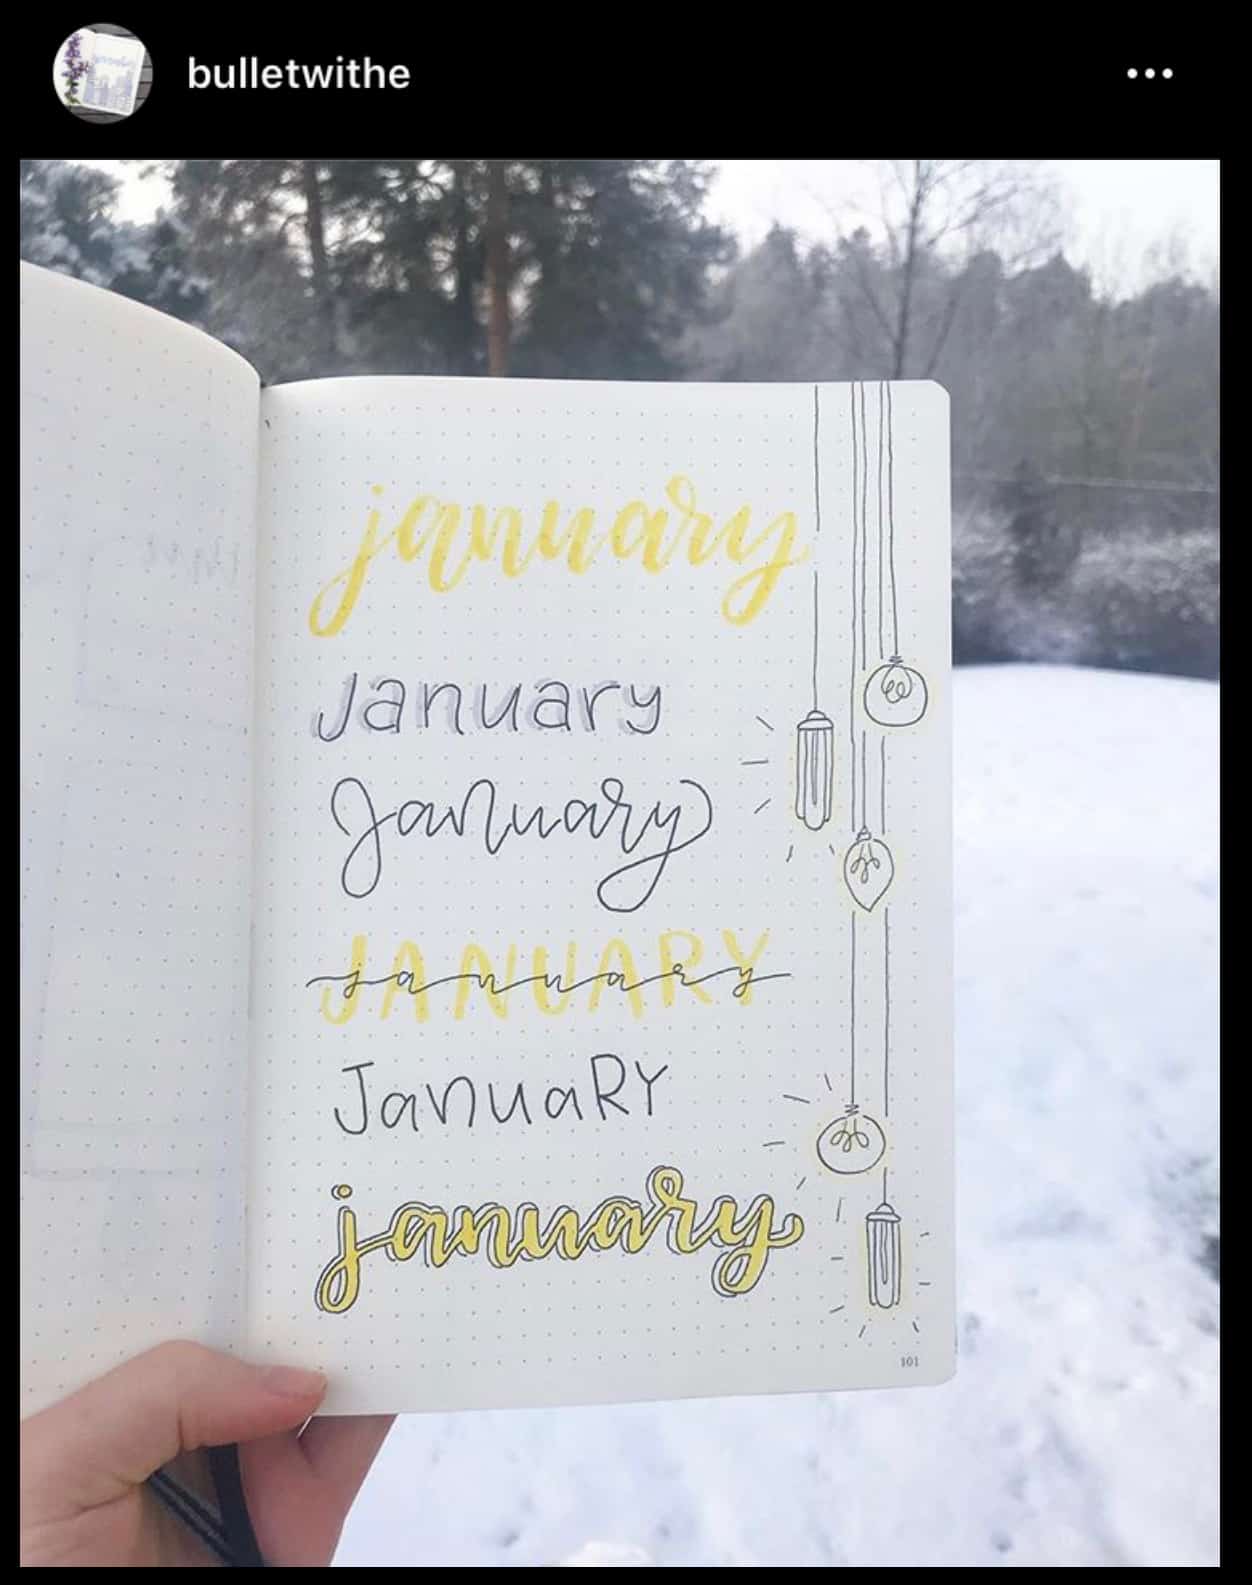 bulletwithe
january
January
January
JANUARY
january
JanuaRY
january
101